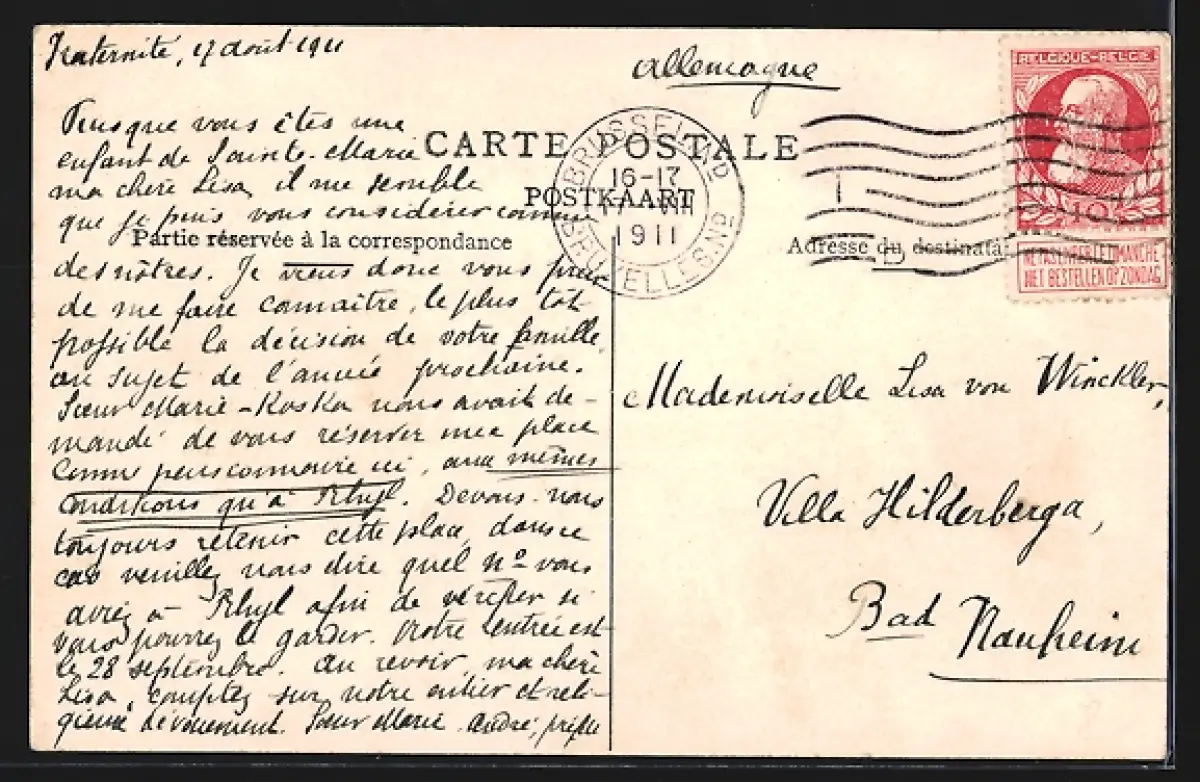 Fraternité, 17 août 1911
Allemagne
Puisque vous êtes une
enfant de Sainte-Marie
ma chère Lisa, il me semble
que je puis vous considérer comme
des nôtres. Je viens donc vous prier
de me faire connaître, le plus tôt
possible la décision de votre famille
au sujet de l'année prochaine.
Sœur Marie-Koska nous avait de-
mandé de vous réserver une place
comme pensionnaire ici, aux mêmes
conditions qu'à Rhyl. Devons-nous
toujours retenir cette place, dans ce
cas veuillez nous dire quel No vous
aviez à Rhyl afin de vérifier si
vous pourrez le garder. Notre rentrée est
le 28 septembre. Au revoir, ma chère
Lisa, comptez sur notre entier et reli-
gieux dévouement. Sœur Marie-André, préfte
CARTE POSTALE
POSTKAART
Partie réservée à la correspondance
Adresse du destinata
BRUSSEL
16-17
1911
BRUXELLES
BELGIQUE-BELGIË
10
NE PAS LIVRER LE DIMANCHE
NIET BESTELLEN OP ZONDAG
Mademoiselle Lisa von Winckler,
Villa Hilderberga,
Bad Nauheim